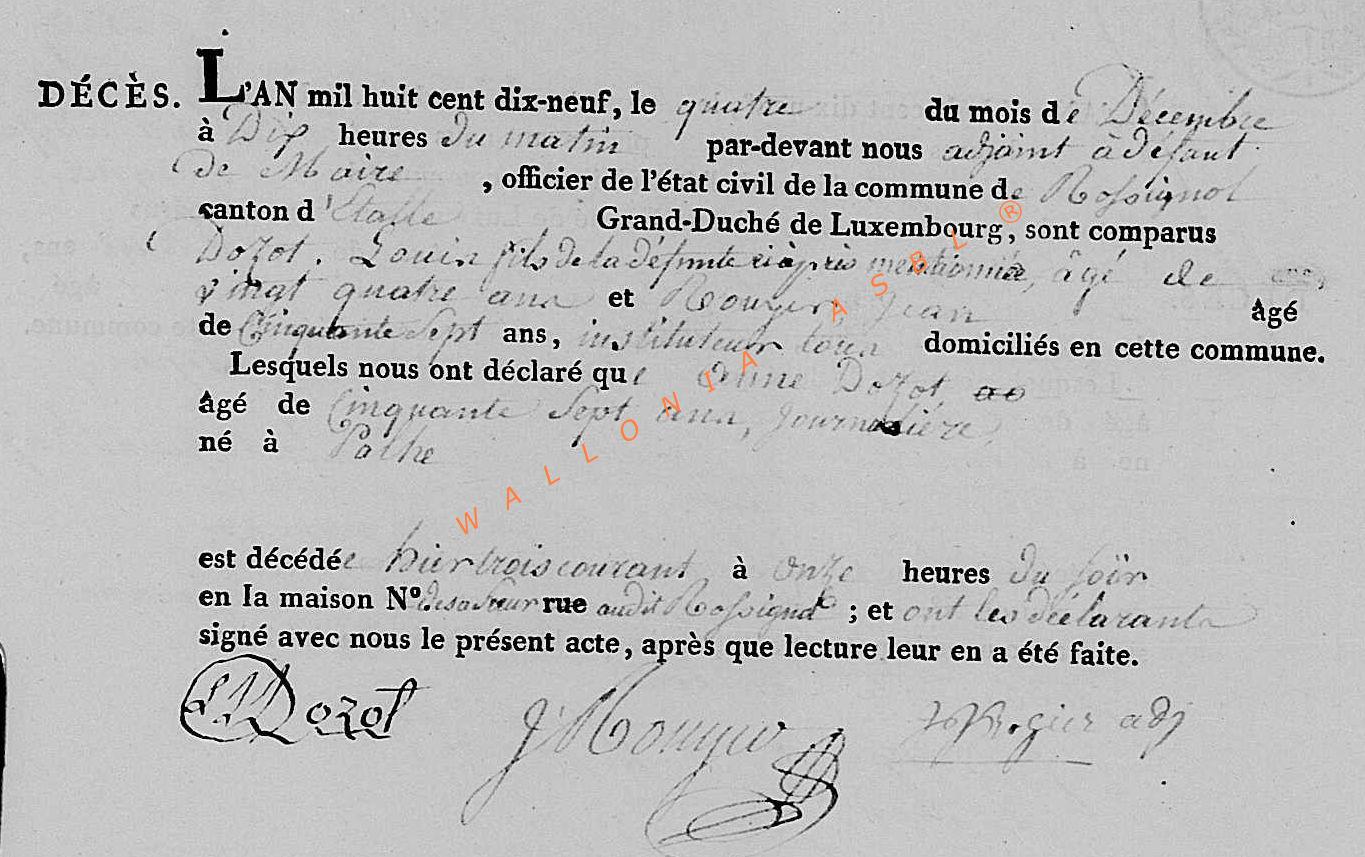 DÉCÈS. L'AN mil huit cent dix-neuf, le quatre du mois de Décembre
à Dix heures du matin par-devant nous adjoint à défaut
de Maire , officier de l'état civil de la commune de Rossignol
canton d'Etalle Grand-Duché de Luxembourg, sont comparus
Dozot. Louis fils de la défunte ci après mentionnée, âgé de ans,
vingt quatre ans et Rougier, Jean âgé
de Cinquante Sept ans, instituteur tous domiciliés en cette commune.
Lesquels nous ont déclaré que Anne Dozot,
âgé de Cinquante Sept ans, journalière,
né à
est décédée hier trois courant à onze heures du soir
en la maison N°. rue audit Rossignol ; et ont les déclarants
signé avec nous le présent acte, après que lecture leur en a été faite.
Dozot adj
WALLONIA ASBL ®